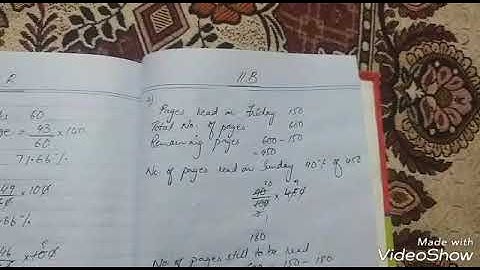 60
= 43 × 100
60
71.66%
49 × 100
.66%
11 B
Pages read in Friday 150
Total No. of pages 600
Remaining pages 600 - 150
= 450
No. of pages read in Sunday 40% of 450
40 × 450
100
180
No. of pages still to be read
150 - 180
Made with
VideoShow